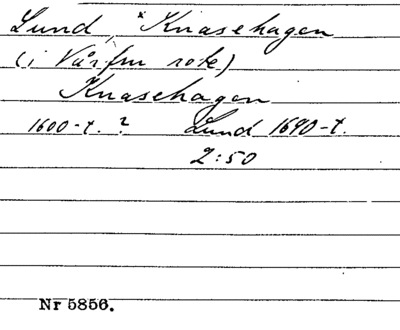 Lund, *Knasehagen
(i Vårfru rote)
Knasehagen
1600-t. ? Lund 1690-t.
2:50
Nr 5856.